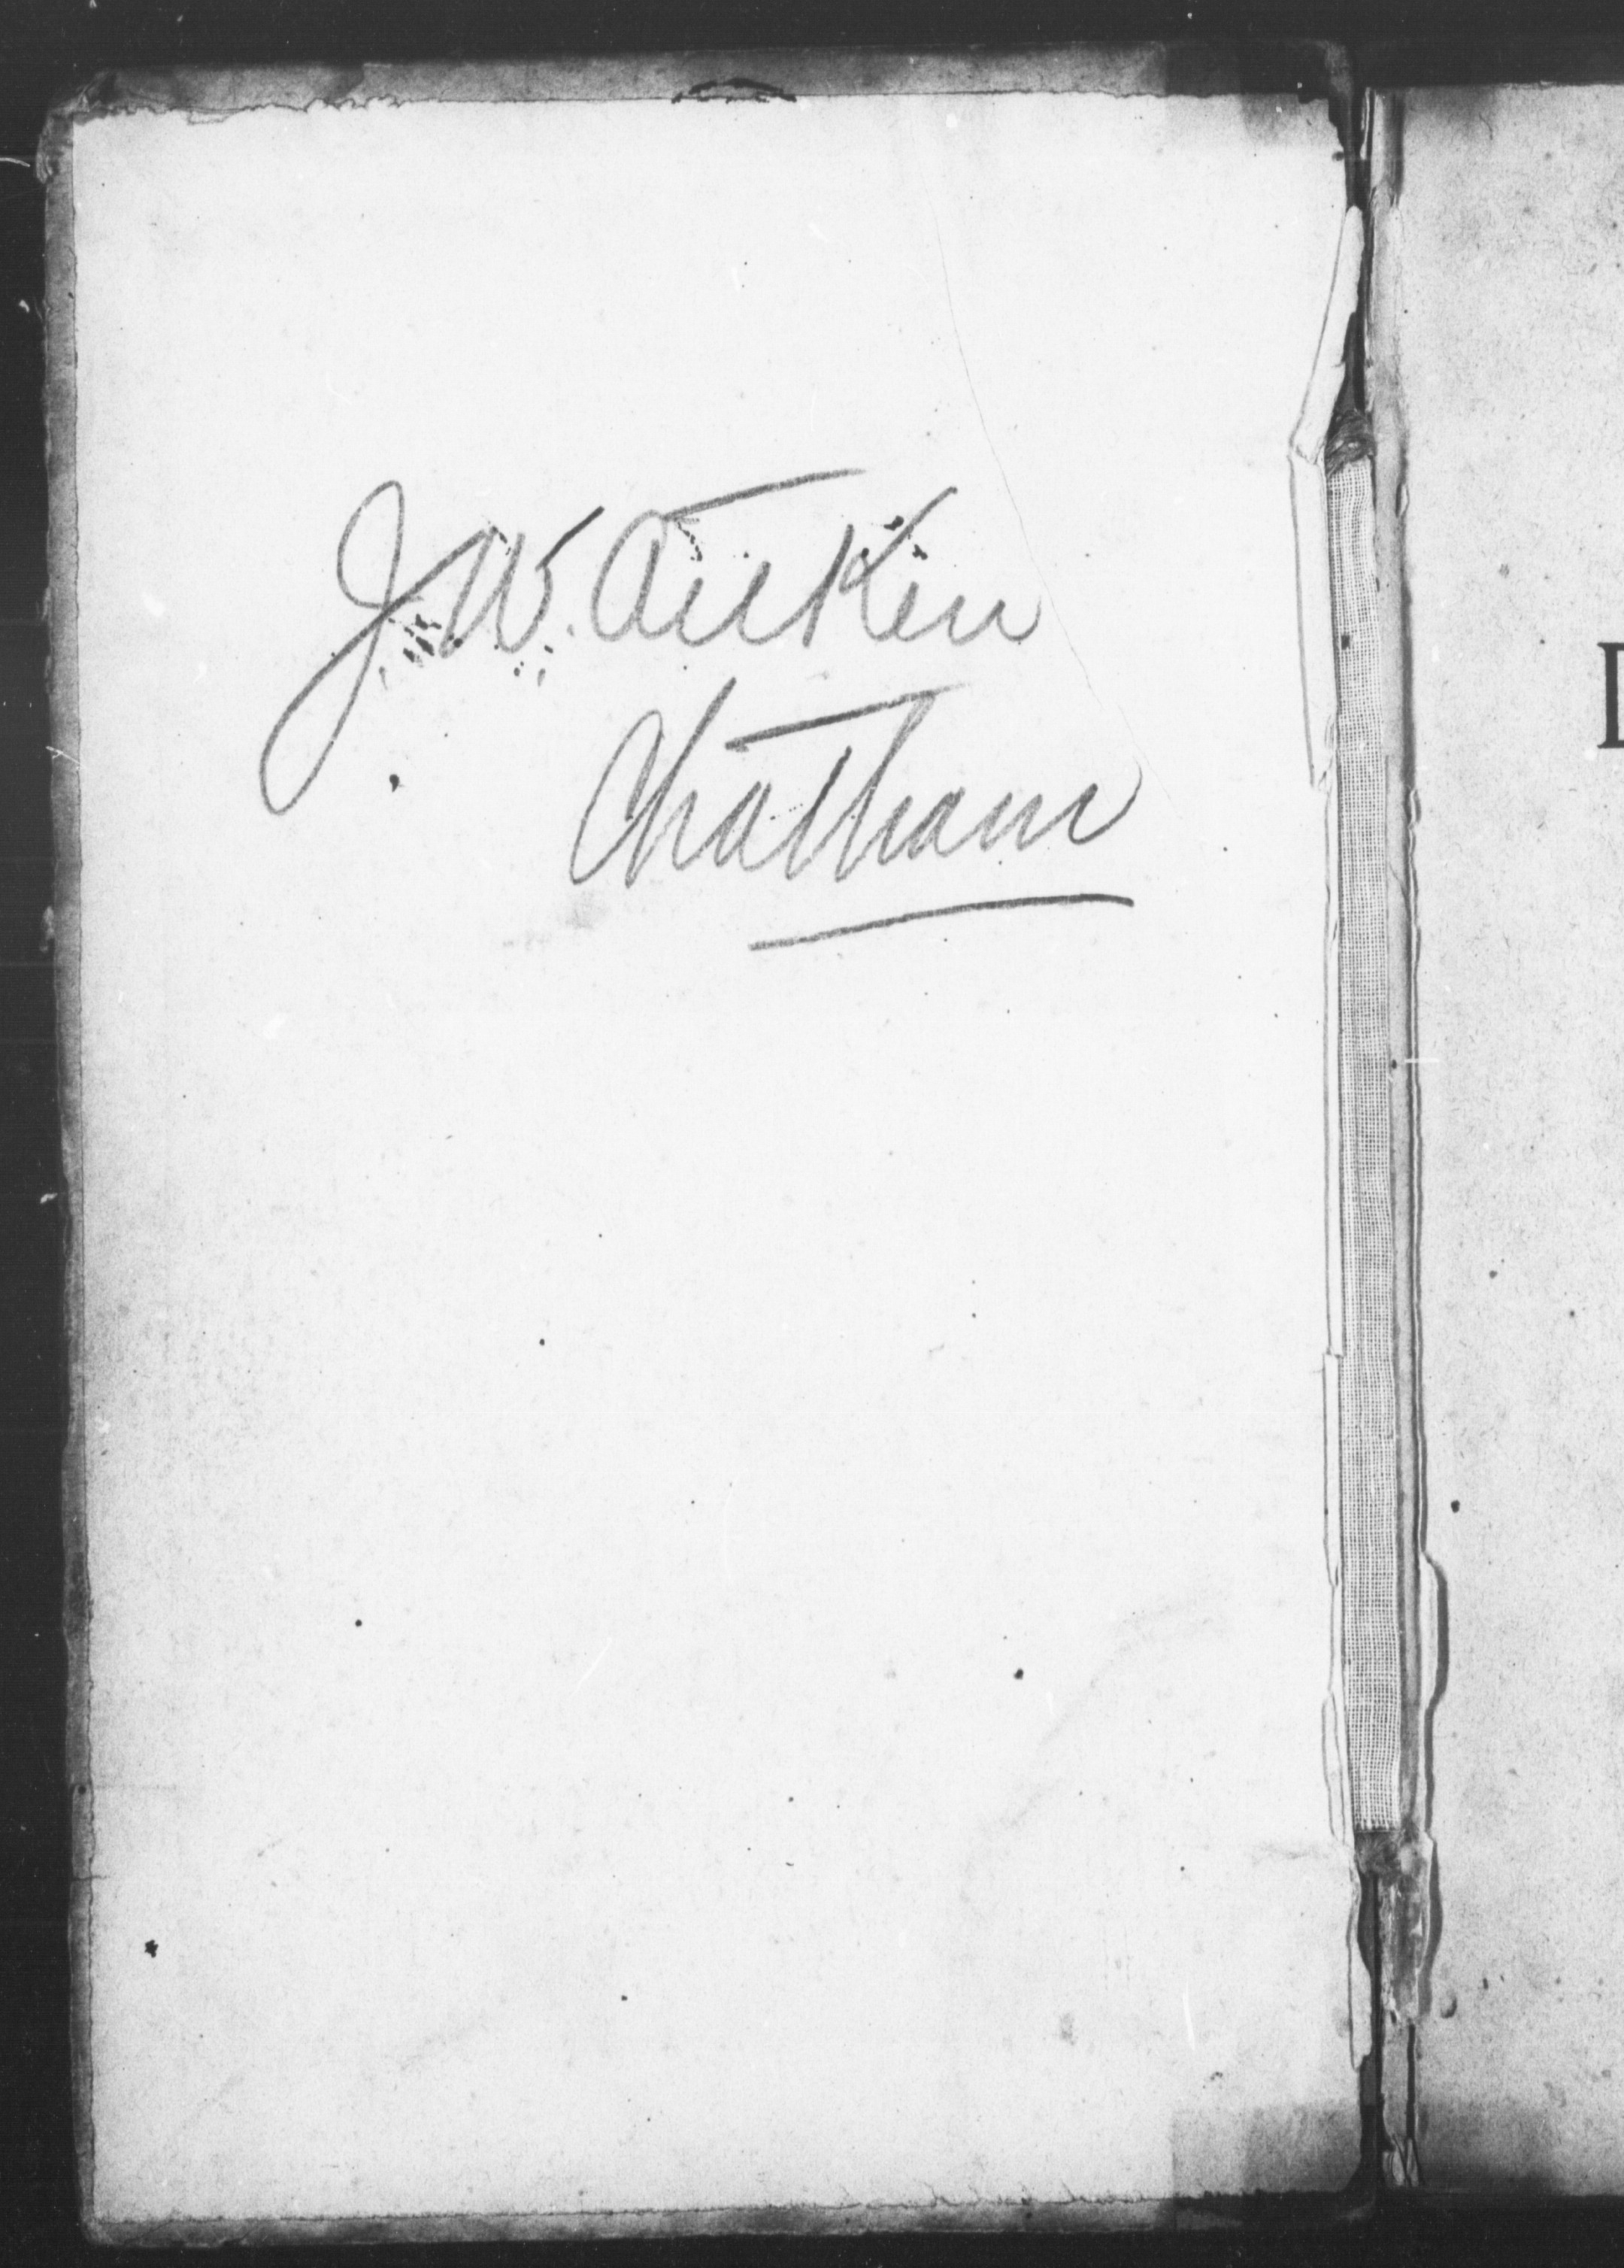 J. W. Aitken
Chatham